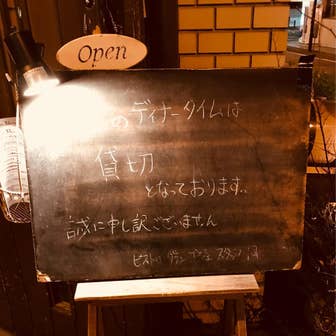 Open
のディナータイムは
貸切
となっております。
誠に申し訳ございません
ビストロ